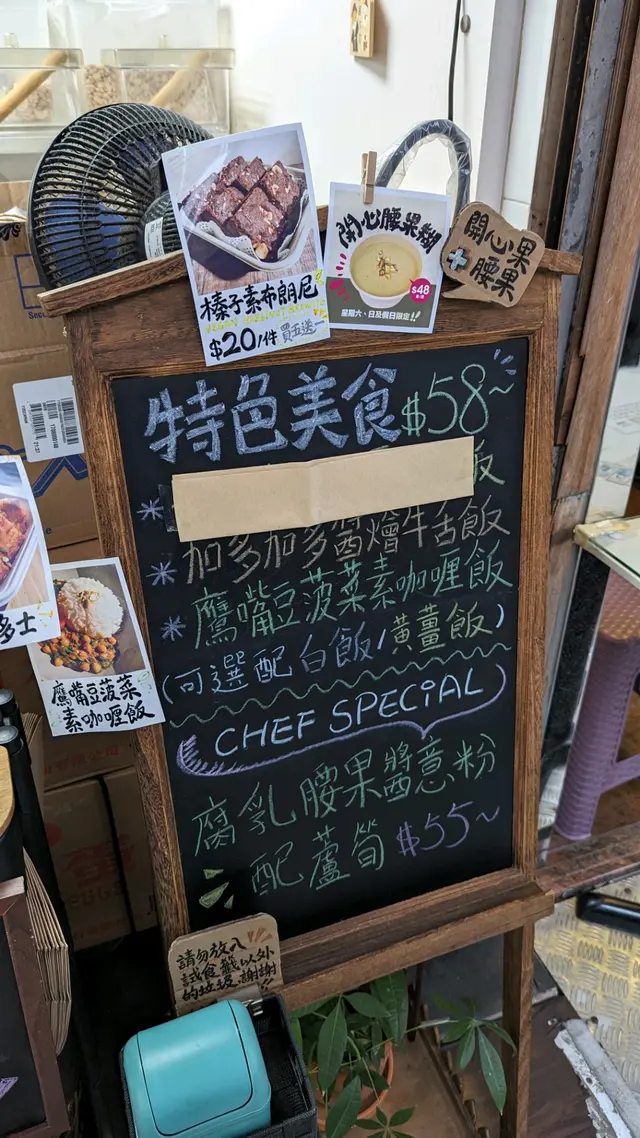 榛子素布朗尼
VEGAN HAZELNUT BROWNIE
$20/件 買五送一
開心腰果糊
$48
星期六、日及假日限定!!
開心果
+腰果
特色美食$58~
飯
加多加多醬燴牛舌飯
鷹嘴豆菠菜素咖喱飯
(可選配白飯/黃薑飯)
CHEF SPECIAL
腐乳腰果醬意粉
配蘆筍 $55~
多士
鷹嘴豆菠菜
素咖喱飯
請勿放入
試食籤以外
的垃圾,謝謝!!